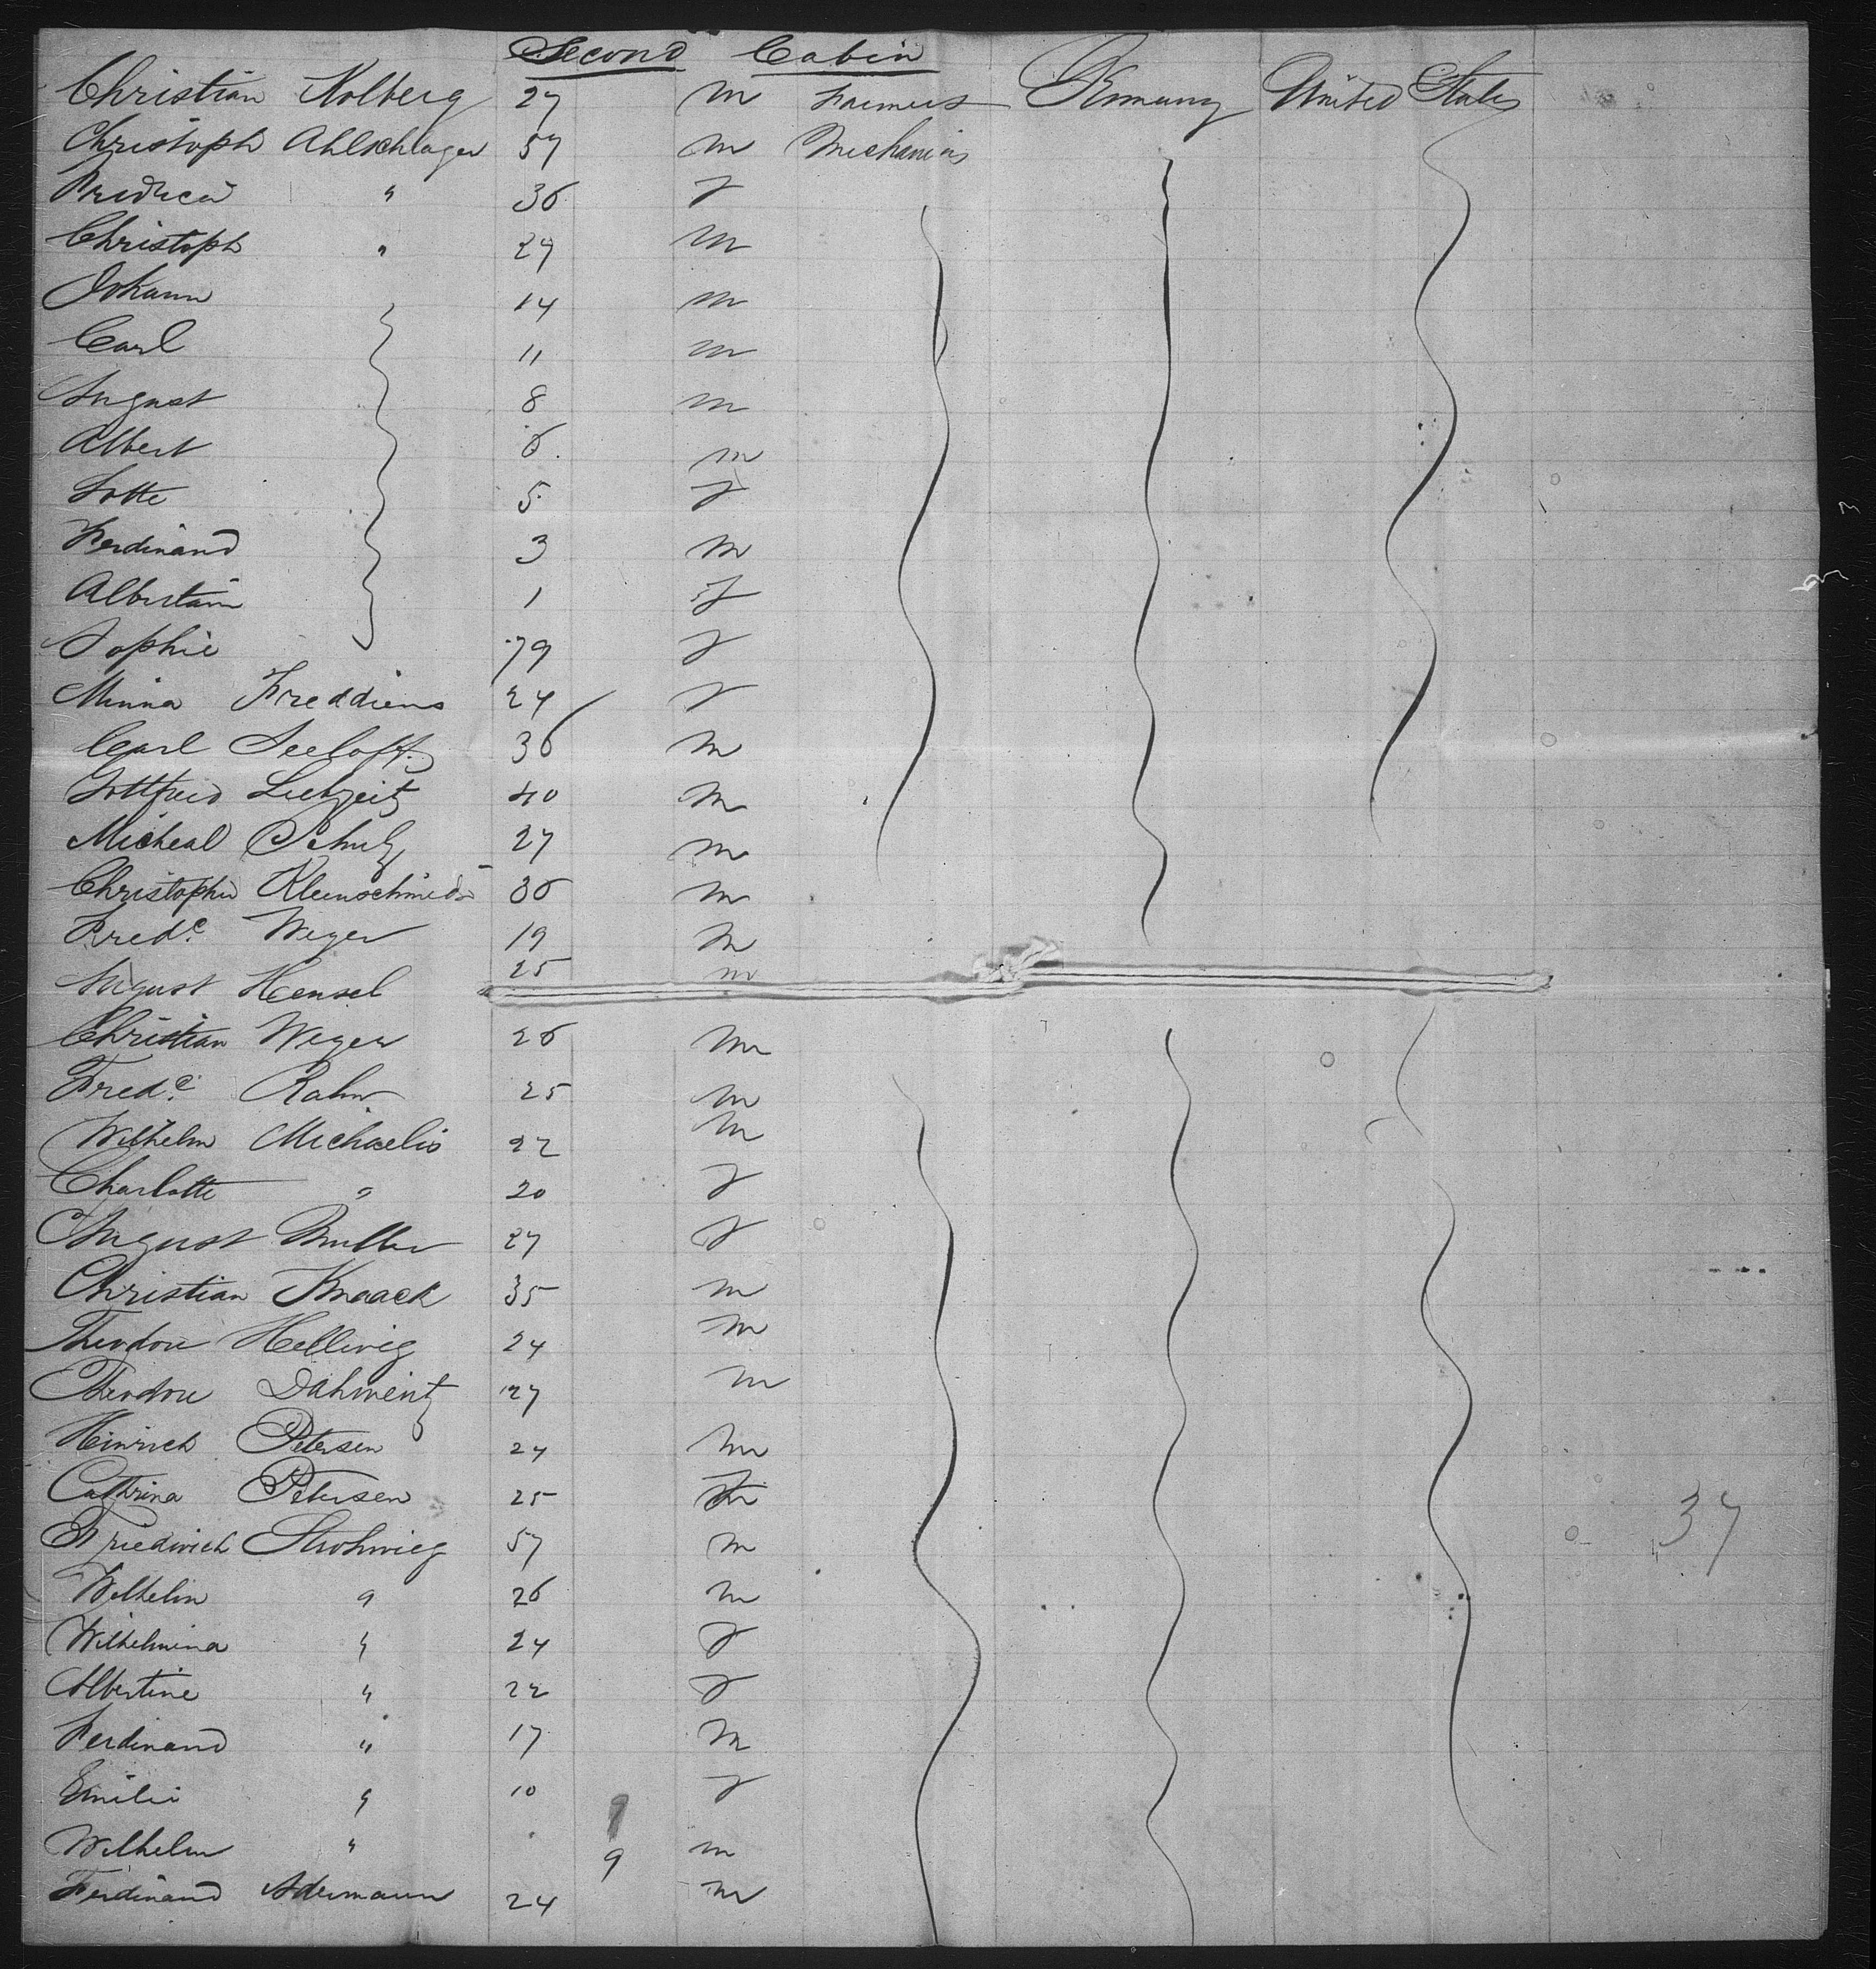 Second Cabin
Christian Kolberg 27 m Farmers Germany United States
Christoph Ahlschlager 57 m Mechanics
Fredrica " 36 f
Christoph " 27 m
Johann 14 m
Carl 11 m
August 8 m
Albert 6 m
Lotte 5 f
Ferdinand 3 m
Albertain 1 f
Sophie 79 f
Minna Freddiens 24 f
Carl Seeloff 36 m
Gottfried Liebzeitz 40 m
Micheal Schulz 27 m
Christopher Kleinschmidt 36 m
Fredc. Weger 19 m
August Hensel 25 m
Christian Weger 26 m
Fredc. Rahn 25 m
Wilhelm Michaelis 22 m
Charlotte " 20 f
August Muller 27 f
Christian Knaack 35 m
Theodore Hellwig 24 m
Theodore Dahwentz 27 m
Heinrich Petersen 24 m
Cathrina Petersen 25
Friedrich Strohwieg 57 m
Wilhelm " 26 m
Wilhelmina " 24 f
Albertine " 22 f
Ferdinand " 17 m
37
Emilie " 10 f
Wilhelm " 9 m
Ferdinand Adermann 24 m